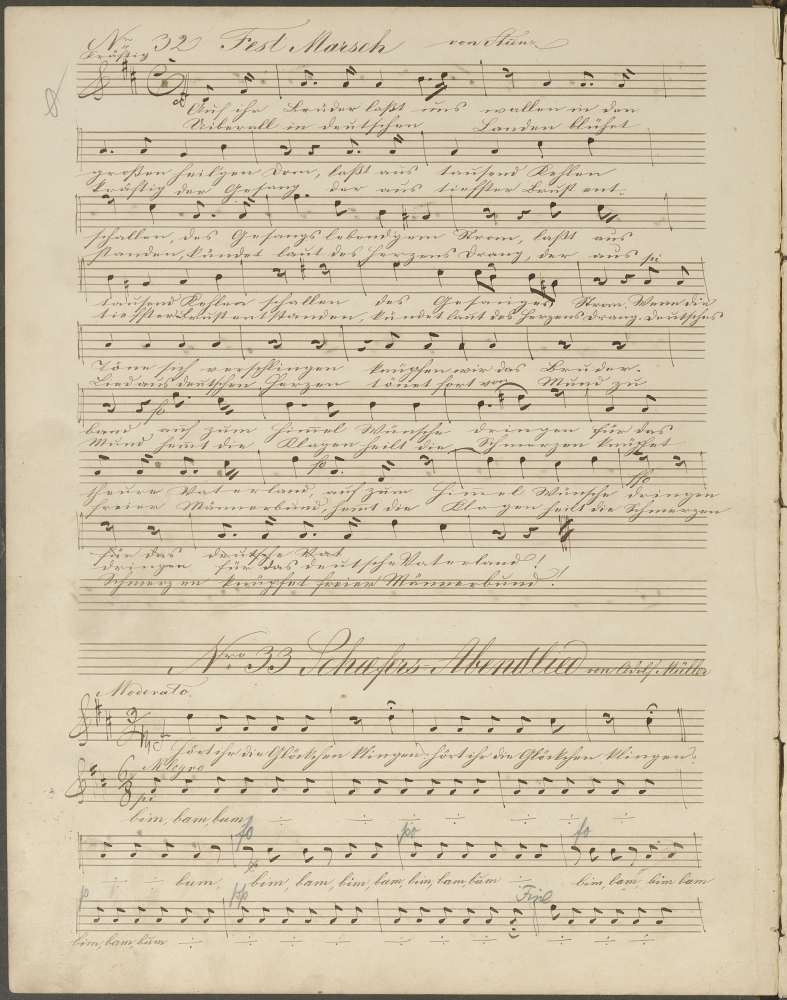 Nro 32 Fest Marsch von Stunz
Kräftig
Auf ihr Brüder laßt uns wallen in den
Uiberall in deutschen Landen blühet
großen heilgen Dom, laßt aus tausend Kehlen
kräftig der Gesang, der aus tiefster Brust ent-
schallen, des Gesangs lebendgem Strom, laßt aus
standen, kündet laut des Herzens Drang, der aus
pi
tausend Kehlen schallen des Gesanges Strom. Wenn die
tiefster Brust entstanden, kündet laut des Herzens Drang. Deutsches
Töne sich verschlingen knüpfen wir das Bruder-
Lied aus deutschen Herzen tönet fort von Mund zu
fo
band auf zum Himel Wünsche dringen für das
Mund hemt die Klagen heilt die Schmerzen knüpfet
fo ffo
theure Vaterland, auf zum Himel Wünsche dringen
freier Männerbund, hemt die Klagen heilt die Schmerzen
für das deutsche Vat
dringen für das deutsche Vaterland!
Schmerzen knüpfet freier Männerbund!
Nro 33 Schæfers-Abendlied von Adolf Müller
Moderato.
Hört ihr die Glöckchen klingen, hört ihr die Glöckchen klingen.
Allegro
pi
bim, bam, bum, ÷ ÷ ÷ ÷ ÷ ÷
fo po fo
÷ ÷ bum, bim, bam, bim, bam, bim, bam, bum ÷ bim, bam, bim bam
p pp Fine
bim, bam, bum ÷ ÷ ÷ ÷ ÷ ÷ ÷ ÷ ÷ ÷